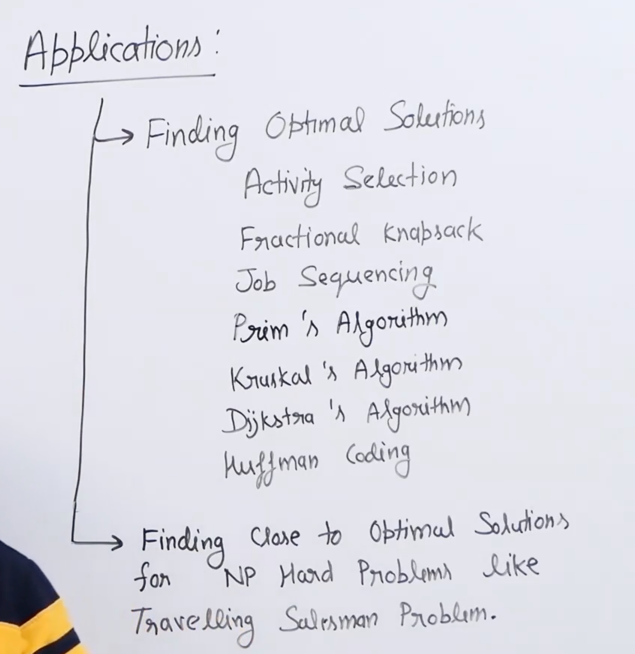 Applications:
Finding Optimal Solutions
Activity Selection
Fractional Knapsack
Job Sequencing
Prim's Algorithm
Kruskal's Algorithm
Dijkstra's Algorithm
Huffman Coding
Finding Close to Optimal Solutions
for NP Hard Problems like
Travelling Salesman Problem.